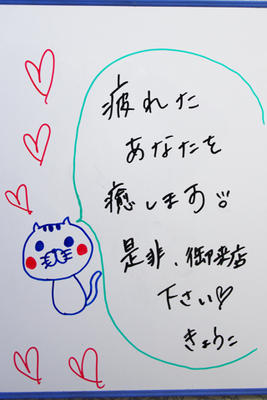 疲れた
あなたを
癒します
是非、御来店
下さい♡
きょうこ